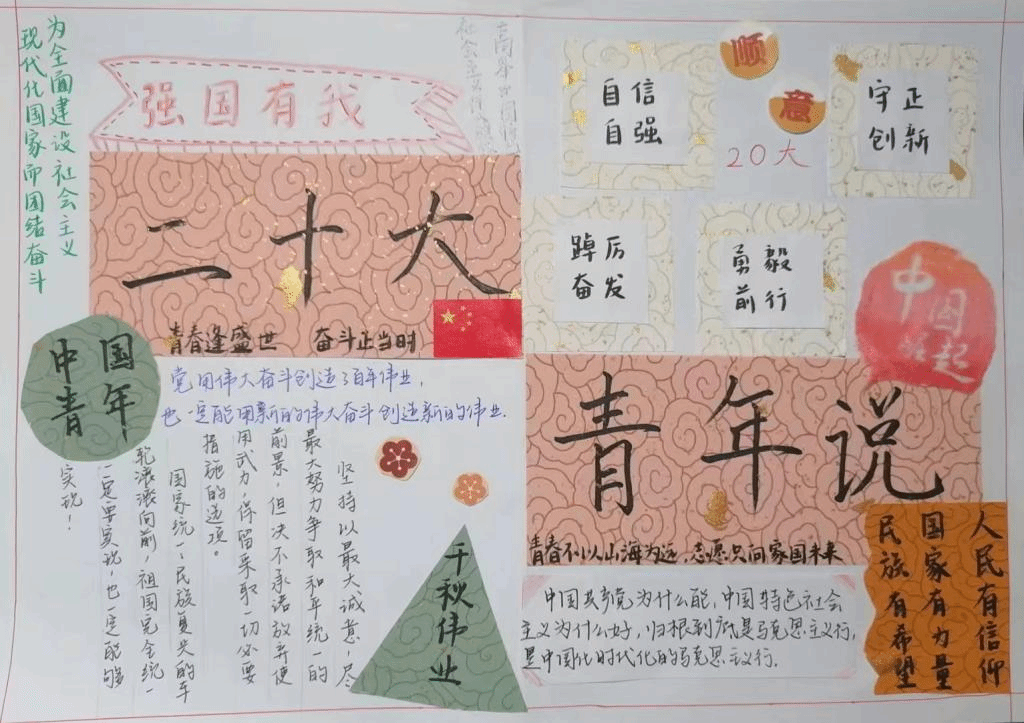 为全面建设社会主义
现代化国家而团结奋斗
强国有我
高举中国
社会主义
二十大
青春逢盛世 奋斗正当时
中国
青年
党用伟大奋斗创造了百年伟业,
也一定能用新的伟大奋斗创造新的伟业.
坚持以最大诚意,尽
最大努力争取和平统一的
前景,但决不承诺放弃使
用武力,保留采取一切必要
措施的选项。
国家统一、民族复兴的车
轮滚滚向前,祖国完全统一
一定要实现,也一定能够
实现!
千秋伟业
自信
自强
顺
意
20大
守正
创新
踔厉
奋发
勇毅
前行
中国
崛起
青年说
青春不以山海为远,志愿只问家国未来
中国共产党为什么能,中国特色社会
主义为什么好,归根到底是马克思主义行,
是中国化时代化的马克思主义行.
人民有信仰
国家有力量
民族有希望